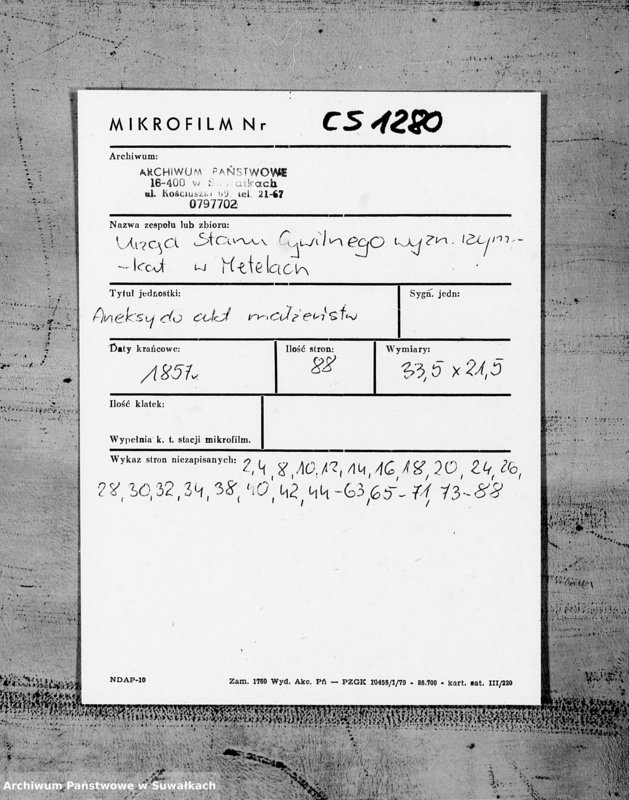 MIKROFILM Nr CS 1280
Archiwum:
ARCHIWUM PAŃSTWOWE
16-400 w Suwałkach
ul. Kościuszki 69, tel. 21-67
0797702
Nazwa zespołu lub zbioru:
Urząd Stanu Cywilnego wyzn. rzym.-
-kat. w Metelach
Tytuł jednostki: Sygn. jedn:
Aneksy do akt małżeństw
Daty krańcowe: Ilość stron: Wymiary:
1857r 88 33,5 x 21,5
Ilość klatek:
Wypełnia k. t. stacji mikrofilm.
Wykaz stron niezapisanych: 2,4,8,10,12,14,16,18,20, 24,26,
28,30,32,34,38,40,42,44-63,65-71,73-88
NDAP-10 Zam. 1760 Wyd. Akc. Pń — PZGK 10456/1/79 - 85.700 - kart. sat. III/220
Archiwum Państwowe w Suwałkach